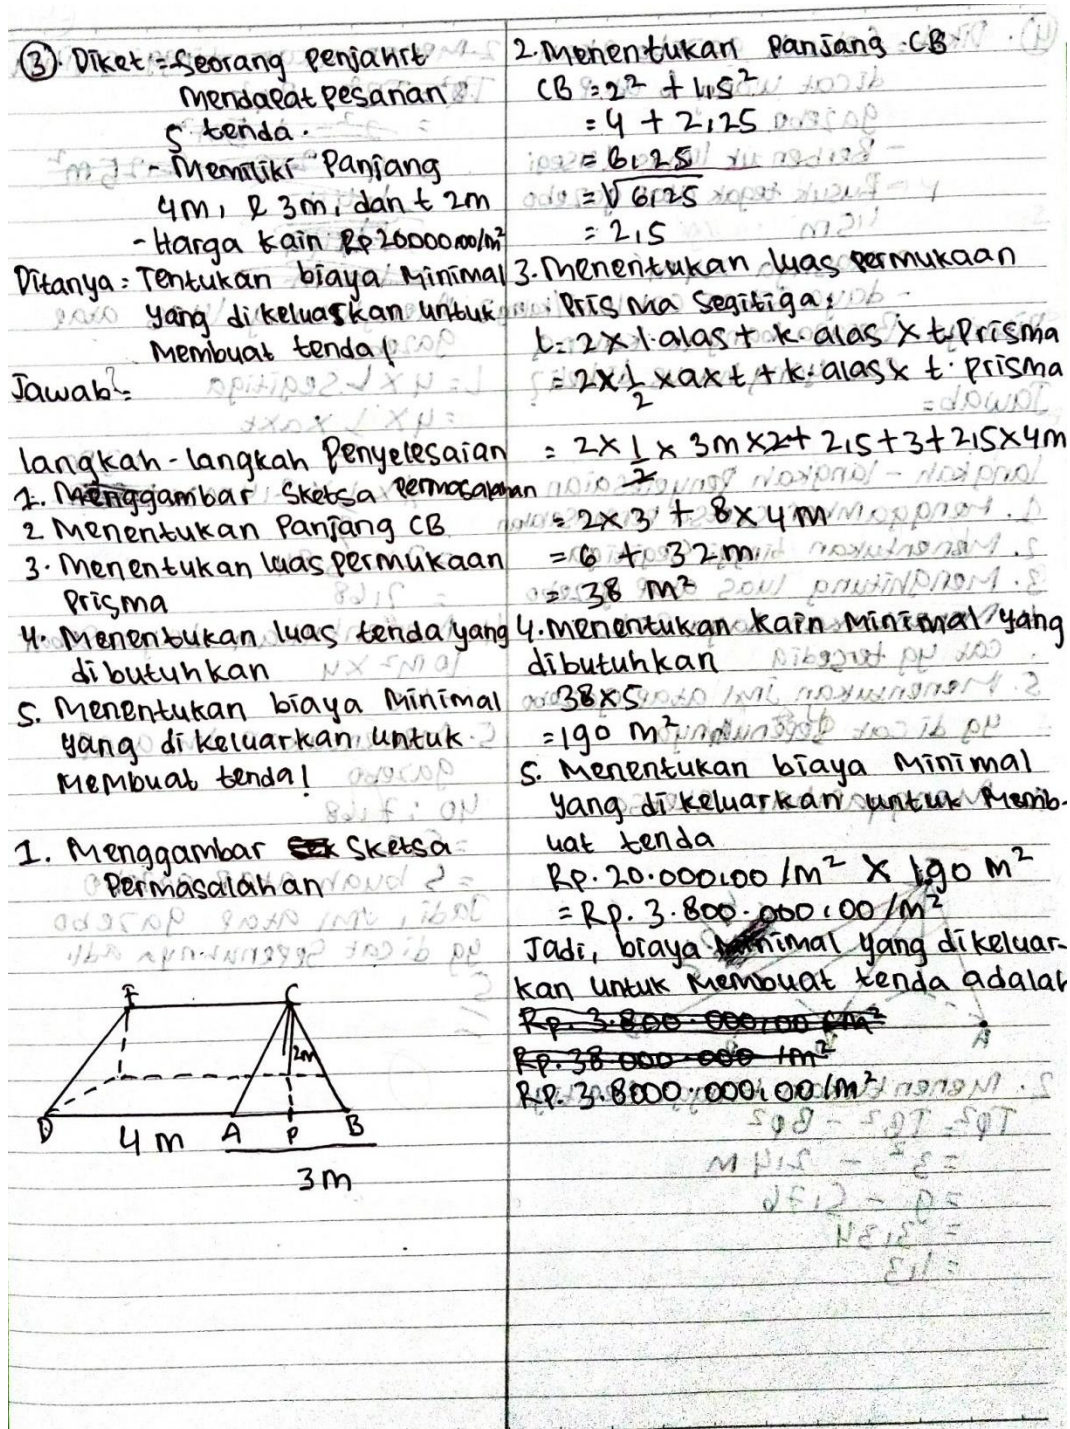 ③. Diket = Seorang Penjahit
Mendapat pesanan
5 tenda.
- Memiliki Panjang
4m, l 3m, dan t 2m
- Harga kain Rp 20000,00/m²
Ditanya = Tentukan biaya Minimal
yang dikeluarkan untuk
Membuat tenda!
Jawab =
langkah-langkah Penyelesaian
1. Menggambar Sketsa Permasalahan
2 Menentukan Panjang CB
3. Menentukan luas permukaan
Prisma
4. Menentukan luas tenda yang
dibutuhkan
5. Menentukan biaya Minimal
yang dikeluarkan untuk
Membuat tenda!
1. Menggambar Sketsa
Permasalahan
F C
2m
D 4 m A P B
3 m
2. Menentukan Panjang CB
CB = 2² + 1,5²
= 4 + 2,25
= 6,25
= √6,25
= 2,5
3. Menentukan luas permukaan
Prisma Segitiga:
L = 2 x l. alas + k. alas x t. Prisma
= 2 x 1/2 x a x t + k. alas x t. Prisma
= 2 x 1/2 x 3m x 2 + 2,5 + 3 + 2,5 x 4m
= 2 x 3 + 8 x 4 m
= 6 + 32 m
= 38 m²
4. Menentukan kain Minimal yang
dibutuhkan
38 x 5
= 190 m²
5. Menentukan biaya Minimal
yang dikeluarkan untuk Memb-
uat tenda
Rp. 20.000,00 /m² X 190 m²
= Rp. 3.800.000,00 /m²
Jadi, biaya Minimal yang dikeluar-
kan untuk Membuat tenda adalah
Rp. 3.800.000,00 /m²
Rp. 38 000 000 /m²
Rp. 3.8000.000,00 /m²